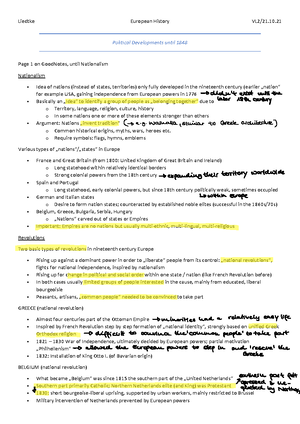 Liedtke European History VL2/21.10.21
Political Developments until 1848
Page 1 on GoodNotes, until Nationalism
Nationalism
Idea of nations (instead of states, territories) only fully developed in the nineteenth century (earlier „nation"
for example USA, gaining independence from European powers in 1776 → didn't exist until the
Basically an „idea" to identify a group of people as „belonging together" due to later 18th century
Territory, language, religion, culture, history
In some nations one or more of these elements stronger than others
Argument: Nations „invent tradition" (→ e.g. similar to Greek
Common historical origins, myths, wars, heroes etc.
Require symbols: flags, hymns, emblems
Various types of „nations"/„states" in Europe
France and Great Britain (from 1800: United Kingdom of Great Britain and Ireland)
Long sustained within relatively identical borders
Strong colonial powers from the 18th century → expanding their territory worldwide
Spain and Portugal
Long statehood, early colonial powers, but since 18th century politically weak, sometimes occupied
German and Italian states within Europe
Desire to form nation states; counteracted by established noble elites (successful in the 1860s/70s)
Belgium, Greece, Bulgaria, Serbia, Hungary
„Nations" carved out of states or Empires
Important: Empires are no nations but usually multi-ethnic, multi-lingual, multi-religious
Revolutions
Two basic types of revolutions in nineteenth century Europe
Rising up against a dominant power in order to „liberate" people from its control: „national revolutions",
fights for national independence, inspired by nationalism
Rising up for change in political and social order within one state / nation (like French Revolution before)
In both cases usually limited groups of people interested in the cause, mainly from educated, liberal
bourgeoisie
Peasants, artisans, „common people" needed to be convinced to take part
GREECE (national revolution)
Aimed four centuries part of the Ottoman Empire → minorities had a relatively easy life
Inspired by French Revolution step by step formation of „national identity", strongly based on unified Greek
Orthodox religion → difficult to convince the "common people" to take part
1821 – 1830 War of Independence, ultimately decided by European powers; partial motivation
„Philhellenism" → allowed the European powers to step in and the
1832: Installation of King Otto I. (of Bavarian origin) Greeks
BELGIUM (national revolution)
What became „Belgium" was since 1815 the southern part of the „United Netherlands" part felt
Southern part primarily Catholic; Northern Netherlands elite (and King) was Protestant
1830: short bourgeoise-liberal uprising, supported by urban workers, mainly restricted to Brussels by
Military intervention of Netherlands prevented by European powers